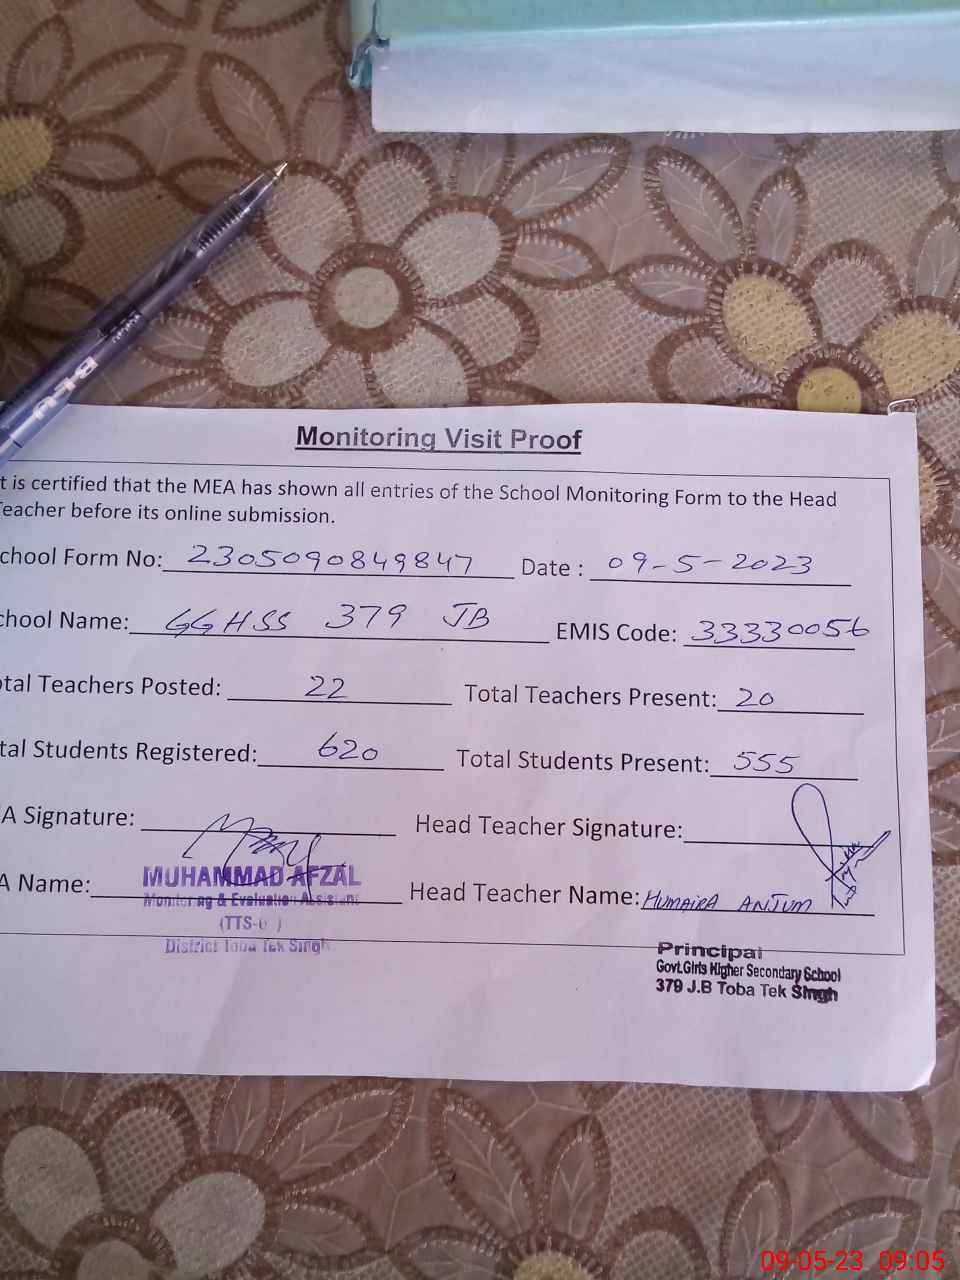 BEA
Monitoring Visit Proof
t is certified that the MEA has shown all entries of the School Monitoring Form to the Head
Teacher before its online submission.
chool Form No: 2305090849847 Date : 09-5-2023
chool Name: GGHSS 379 JB EMIS Code: 33330056
otal Teachers Posted: 22 Total Teachers Present: 20
tal Students Registered: 620 Total Students Present: 555
A Signature: Head Teacher Signature:
A Name: MUHAMMAD AFZAL Head Teacher Name: HUMAIRA ANJUM
Monitoring & Evaluation Assistant
(TTS-6 )
District Toba Tek Singh
Principal
Govt.Girls Higher Secondary School
379 J.B Toba Tek Singh
09-05-23 09:05